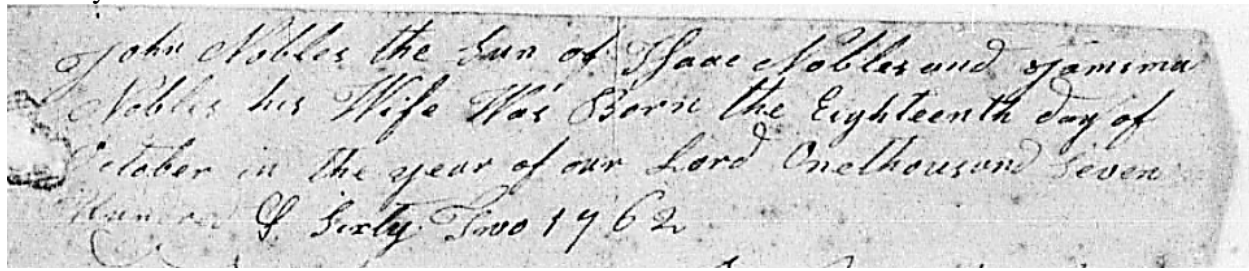 John Nobles the Sun of Isaac Nobles and Jamima
Nobles his Wife Was Born the Eighteenth day of
October in the year of our Lord Onethousand Seven
Hundred & Sixty Two 1762